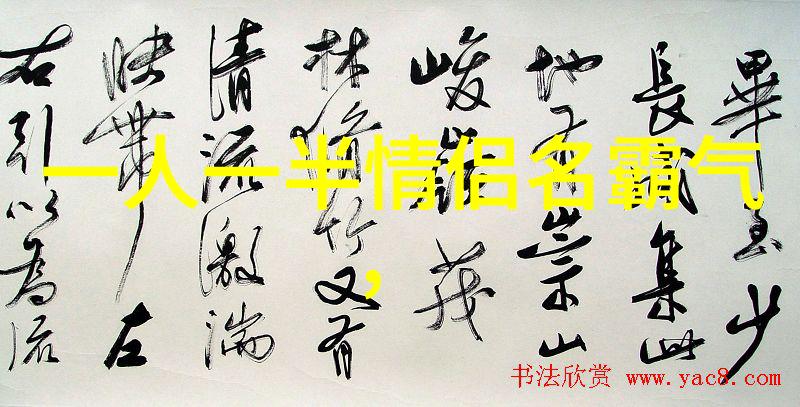 畢至少
長咸集此
地有崇山
峻嶺茂
林脩竹又有
清流激湍
映帶左
右引以為流
一人一半情侣名霸气
，
书法欣赏 www.yac8.com